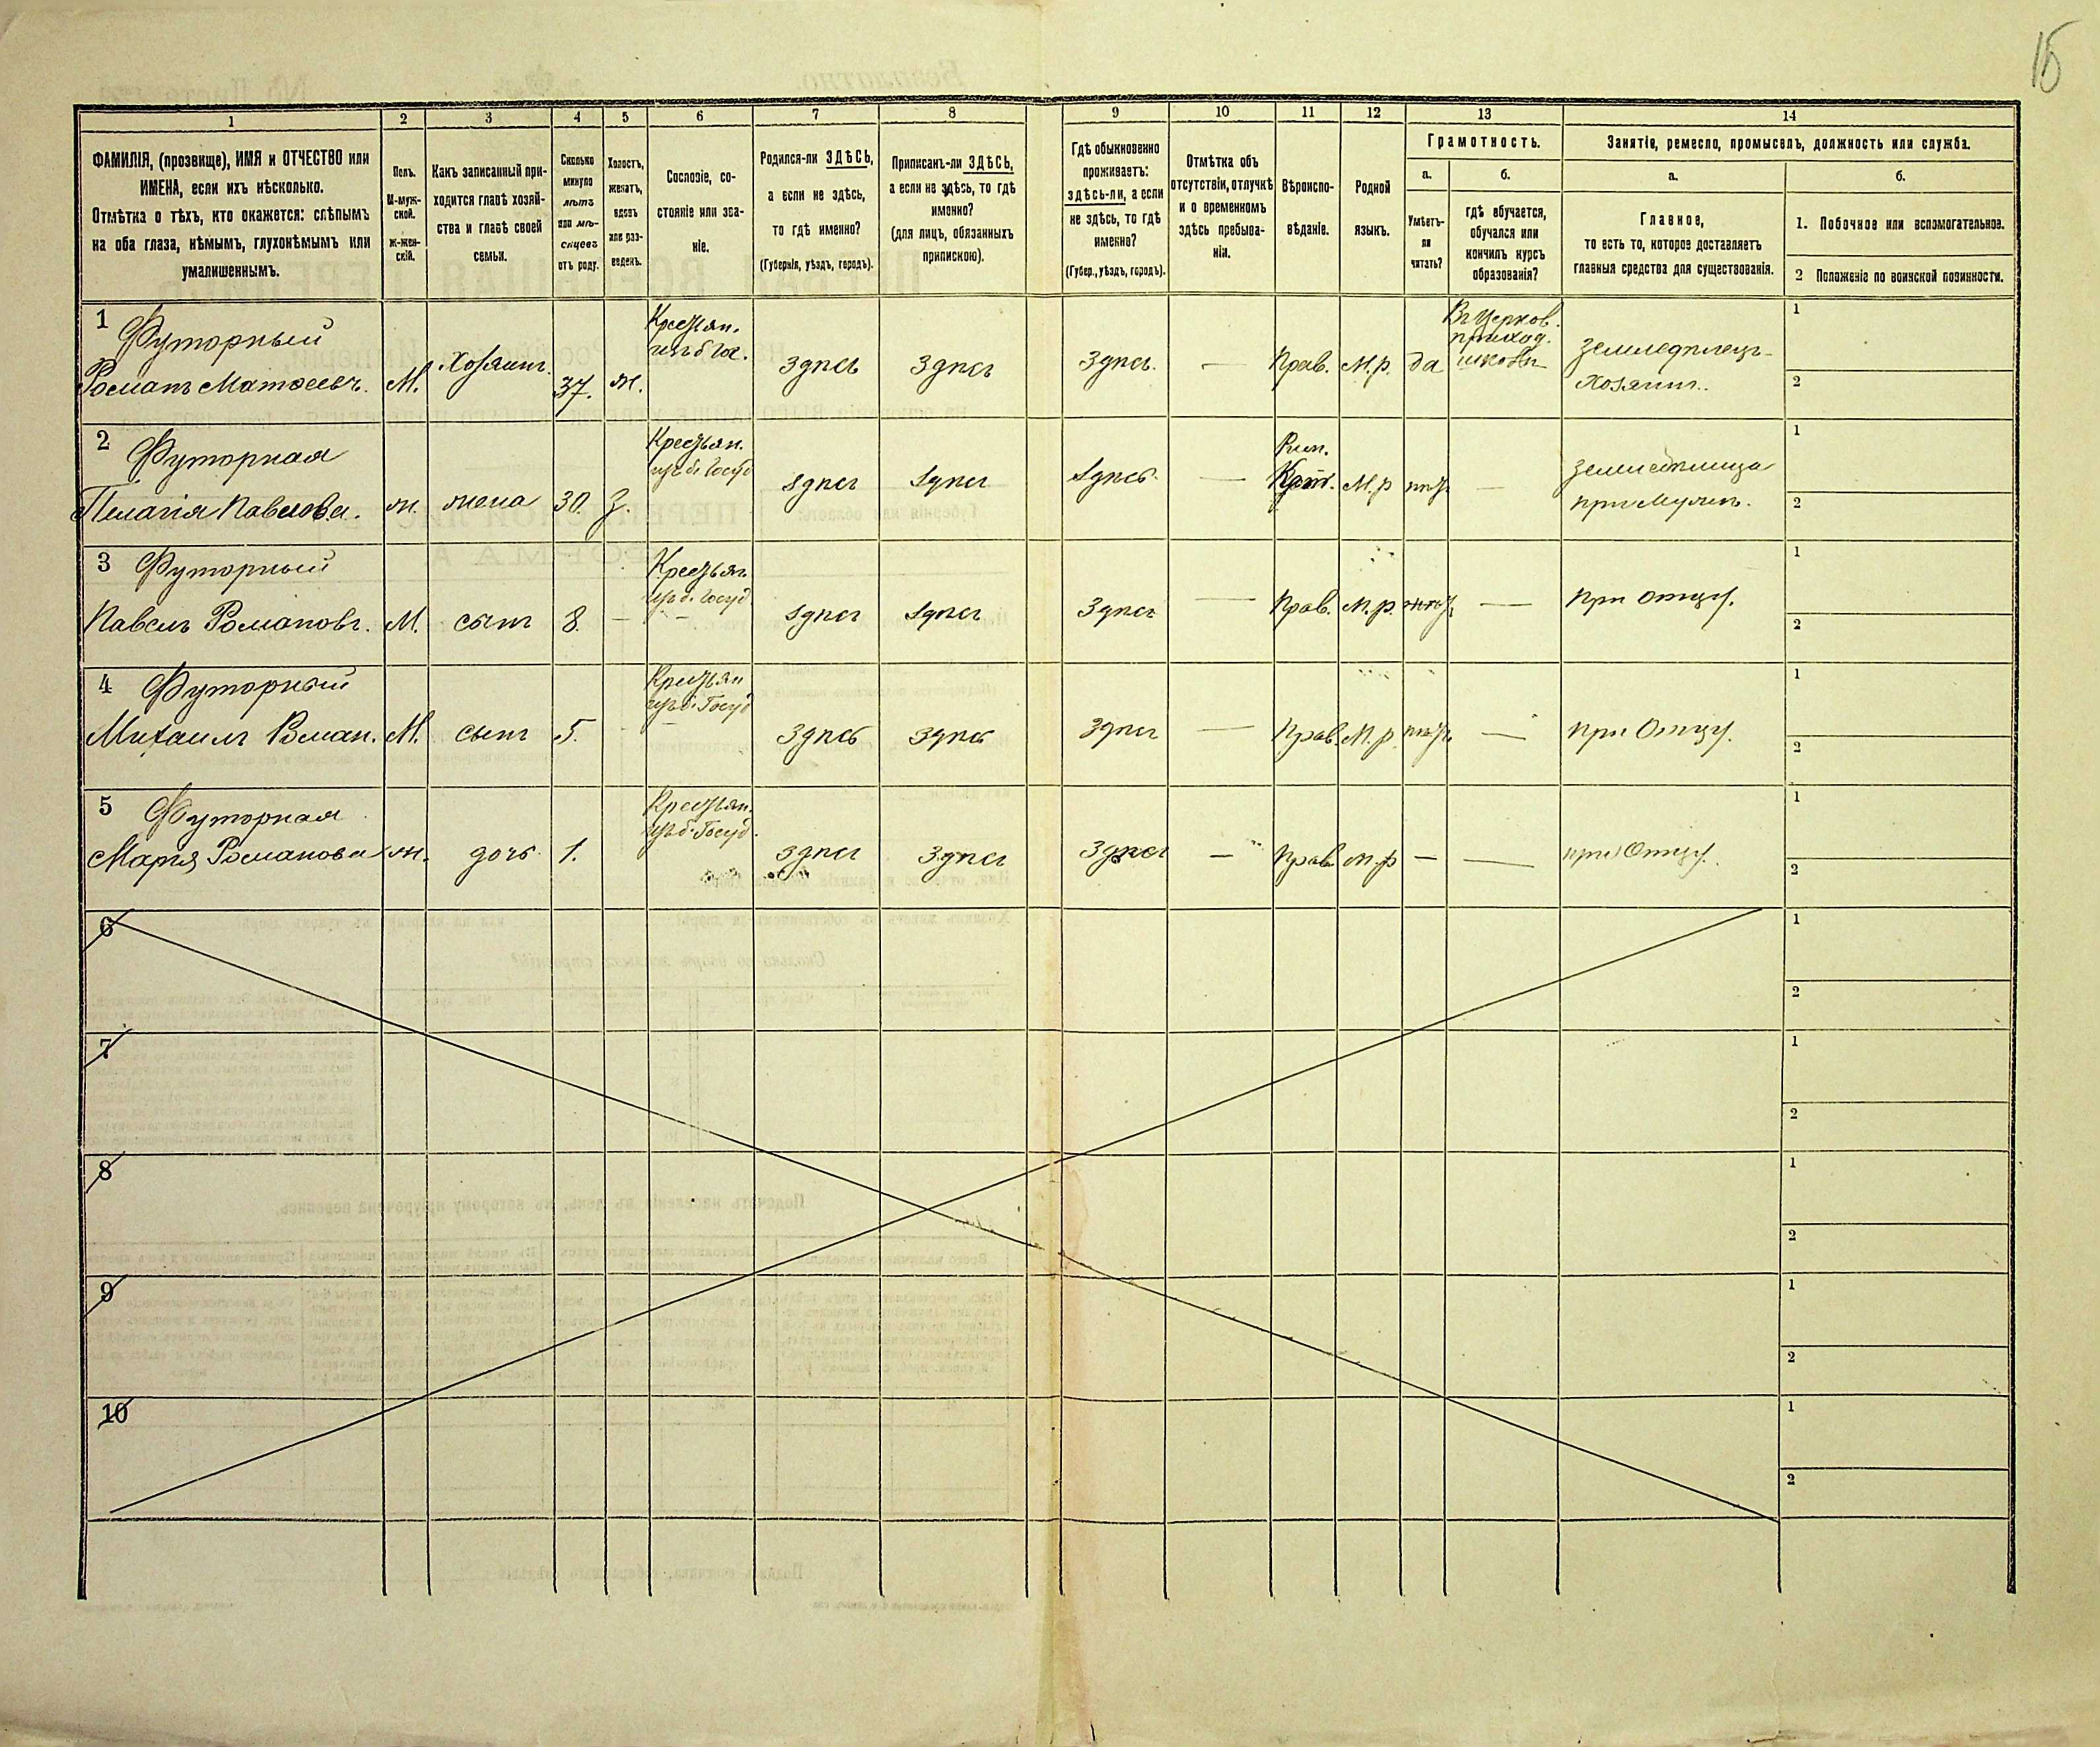 15
1 2 3 4 5 6 7 8 9 10 11 12 13 14
ФАМИЛІЯ, (прозвище), ИМЯ и ОТЧЕСТВО или
ИМЕНА, если ихъ нѣсколько.
Отмѣтка о тѣхъ, кто окажется: слѣпымъ
на оба глаза, нѣмымъ, глухонѣмымъ или
умалишеннымъ.
Полъ.
М-муж-
ской.
Ж-жен-
скій.
Какъ записанный при-
ходится главѣ хозяй-
ства и главѣ своей
семьи.
Сколько
минуло
лѣтъ
или мѣ-
сяцевъ
отъ роду.
Холостъ,
женатъ,
вдовъ
или раз-
веденъ.
Сословіе, со-
стояніе или зва-
ніе.
Родился-ли ЗДѢСЬ,
а если не здѣсь,
то гдѣ именно?
(Губернія, уѣздъ, городъ).
Приписанъ-ли ЗДѢСЬ,
а если не здѣсь, то гдѣ
именно?
(для лицъ, обязанныхъ
припискою).
Гдѣ обыкновенно
проживаетъ:
здѣсь-ли, а если
не здѣсь, то гдѣ
именно?
(Губер., уѣздъ, городъ).
Отмѣтка объ
отсутствіи, отлучкѣ
и о временномъ
здѣсь пребыва-
ніи.
Вѣроиспо-
вѣданіе.
Родной
языкъ.
Грамотность.
а.
Умѣетъ-
ли
читать?
б.
гдѣ обучается,
обучался или
кончилъ курсъ
образованія?
Занятіе, ремесло, промыселъ, должность или служба.
а.
Главное,
то есть то, которое доставляетъ
главныя средства для существованія.
б.
1. Побочное или вспомогательное.
2 Положеніе по воинской повинности.
1 Футорный
Романъ Матвеевъ. М. Хозяинъ. 37. ж.
Крестьян.
изъ б Гос.
здѣсь здѣсь здѣсь. — Прав. М.р. да
Въ церков.
приход.
школѣ
земледѣлецъ-
хозяинъ.
1
2
2 Футорная
Пелагія Павлова. ж. жена 30. З.
Крестьян.
изъ б. Госуд
здѣсь здѣсь здѣсь. —
Рим.
Кат. М.р нѣт —
земледѣлица
при мужѣ.
1
2
3 Футорный
Павелъ Романовъ. М. сынъ 8. —
Крестьян
изъ б. Госуд
здѣсь здѣсь здѣсь — Прав. М.р. нѣт — при отцу.
1
2
4 Футорный
Михаилъ Роман. М. сынъ 5.
Крестьян
изъ б. Госуд
здѣсь здѣсь здѣсь — Прав. М.р. нѣт. — при Отцу.
1
2
5 Футорная
Марія Романова ж. дочь 1.
Крестьян.
изъ б. Госуд.
здѣсь здѣсь здѣсь — Прав м.р — — при Отцу.
1
2
6
1
2
7
1
2
8
1
2
9
1
2
10
1
2